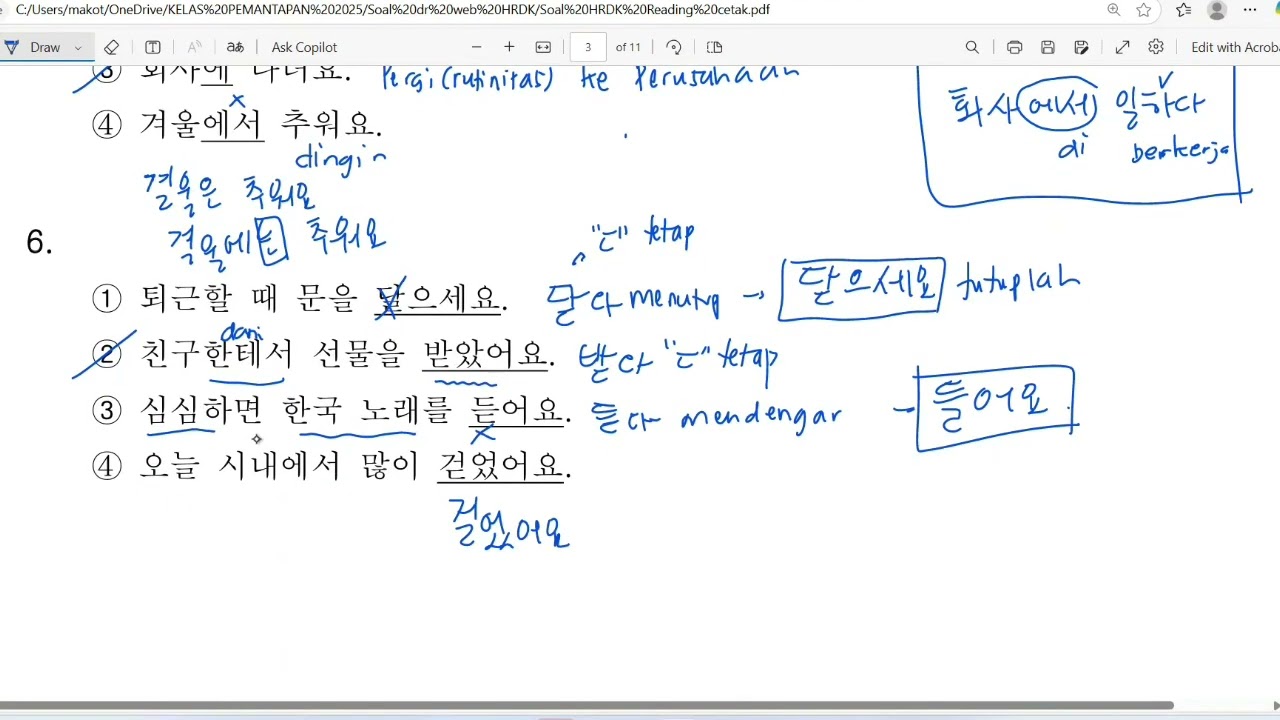 C:/Users/makot/OneDrive/KELAS%20PEMANTAPAN%202025/Soal%20dr%20web%20HRDK/Soal%20HRDK%20Reading%20cetak.pdf
Draw
Ask Copilot
3 of 11
Edit with Acrob
③ 회사에 다녀요. Pergi (rutinitas) ke Perusahaan
④ 겨울에서 추워요.
x
dingin
겨울은 추워요
겨울에는 추워요
화사에서 일하다
di berkerja
6.
"ㄷ" tetap
① 퇴근할 때 문을 달으세요. 닫다 menutup → 닫으세요 tutuplah
dari
② 친구한테서 선물을 받았어요. 받다 "ㄷ" tetap
③ 심심하면 한국 노래를 듣어요. 듣다 mendengar → 들어요
x
④ 오늘 시내에서 많이 걷었어요.
걸었어요